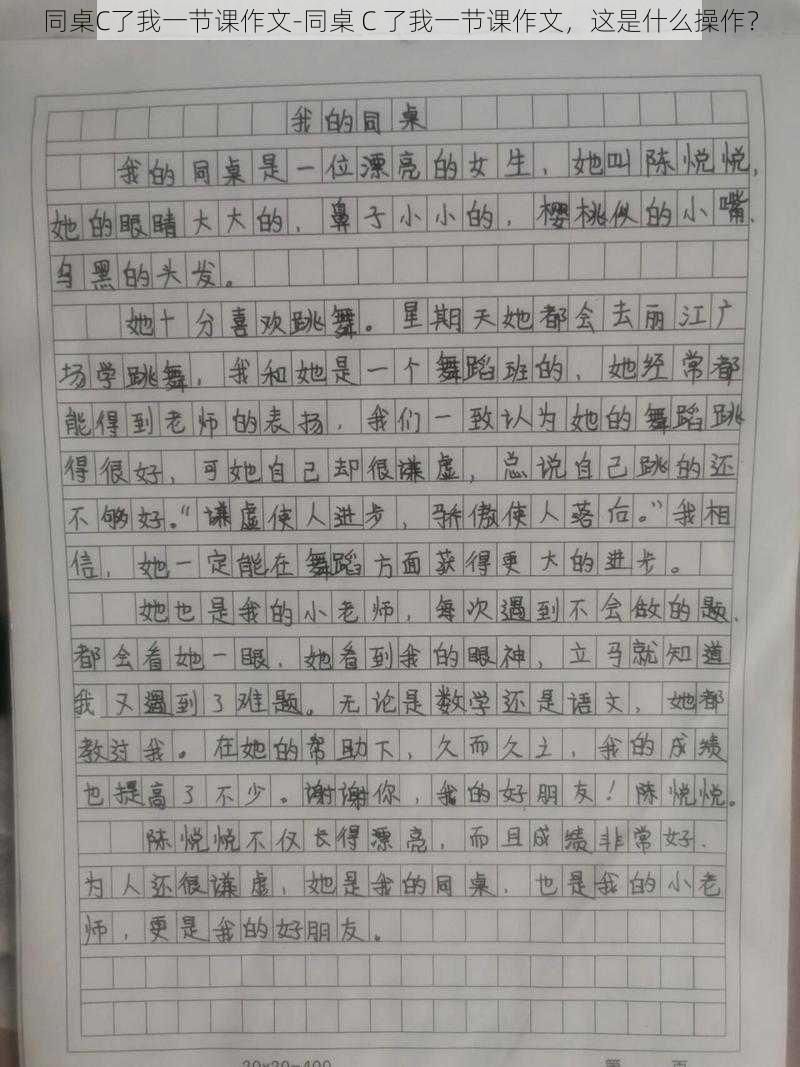 同桌C了我一节课作文-同桌 C 了我一节课作文，这是什么操作？
我的同桌
我的同桌是一位漂亮的女生，她叫陈悦悦，
她的眼睛大大的，鼻子小小的，樱桃似的小嘴，
乌黑的头发。
她十分喜欢跳舞。星期天她都会去丽江广
场学跳舞，我和她是一个舞蹈班的，她经常都
能得到老师的表扬，我们一致认为她的舞蹈跳
得很好，可她自己却很谦虚，总说自己跳的还
不够好。“谦虚使人进步，骄傲使人落后。”我相
信，她一定能在舞蹈方面获得更大的进步。
她也是我的小老师，每次遇到不会做的题，
都会看她一眼，她看到我的眼神，立马就知道
我又遇到了难题。无论是数学还是语文，她都
教过我。在她的帮助下，久而久之，我的成绩
也提高了不少。谢谢你，我的好朋友！陈悦悦。
陈悦悦不仅长得漂亮，而且成绩非常好，
为人还很谦虚，她是我的同桌，也是我的小老
师，更是我的好朋友。
20×20=400